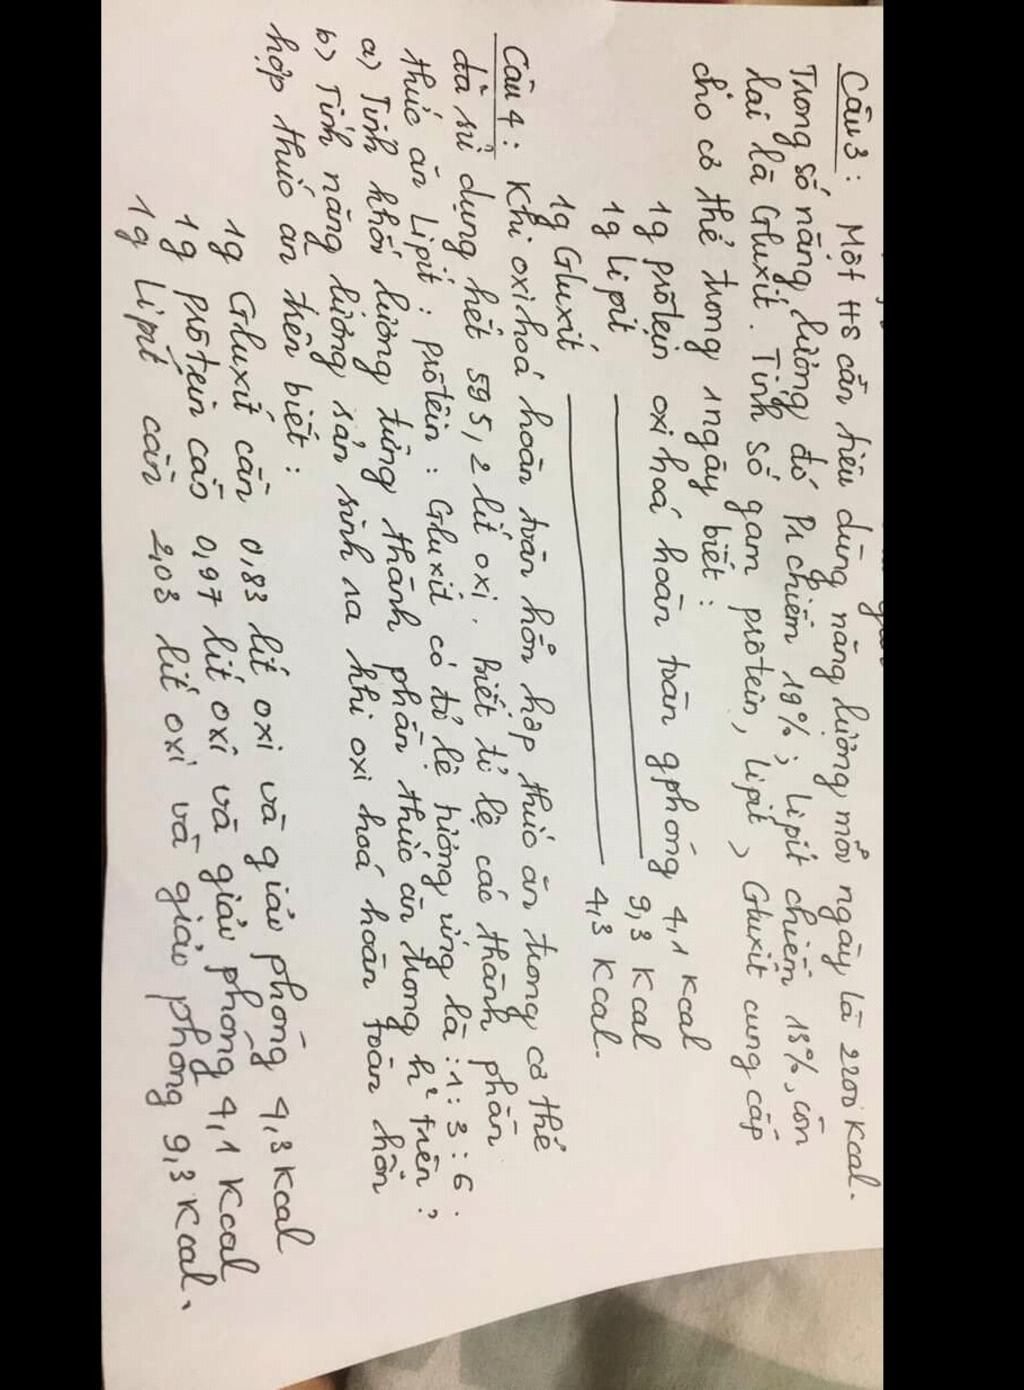 Câu 3: Một HS cần tiêu dùng năng lượng mỗi ngày là 2200 Kcal.
Trong số năng lượng đó Pr chiếm 19%, lipit chiếm 13%, còn
lại là Gluxit. Tính số gam prôtein, lipit, Gluxit cung cấp
cho cơ thể trong 1 ngày biết:
1g prôtein oxi hoá hoàn toàn gphóng 4,1 kcal
1g lipit 9,3 Kcal
1g Gluxit 4,3 Kcal.
Câu 4: Khi oxi hoá hoàn toàn hỗn hợp thức ăn trong cơ thể
đã sử dụng hết 595,2 lít oxi. Biết tỉ lệ các thành phần
thức ăn Lipit: prôtêin: Gluxit có tỉ lệ tương ứng là: 1:3:6.
a) Tính khối lượng từng thành phần thức ăn trong h² trên?
b) Tính năng lượng sản sinh ra khi oxi hoá hoàn toàn hỗn
hợp thức ăn trên biết:
1g Gluxit cần 0,83 lít oxi và giải phóng 4,3 Kcal
1g prôtein cần 0,97 lít oxi và giải phóng 4,1 Kcal
1g Lipit cần 2,03 lít oxi và giải phóng 9,3 Kcal.